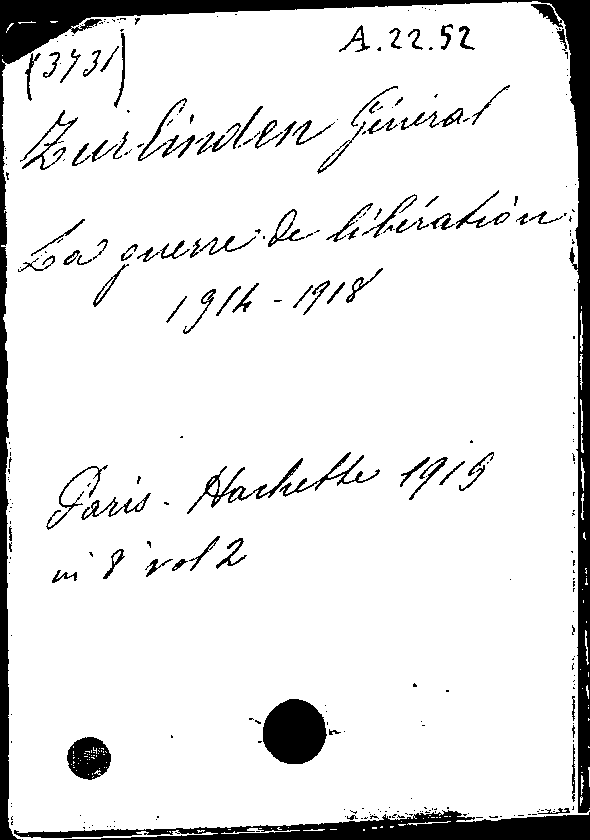 (3731)
A.22.52
Zurlinden Général
La guerre de libération
1914-1918
Paris - Hachette 1919
in 8° vol 2